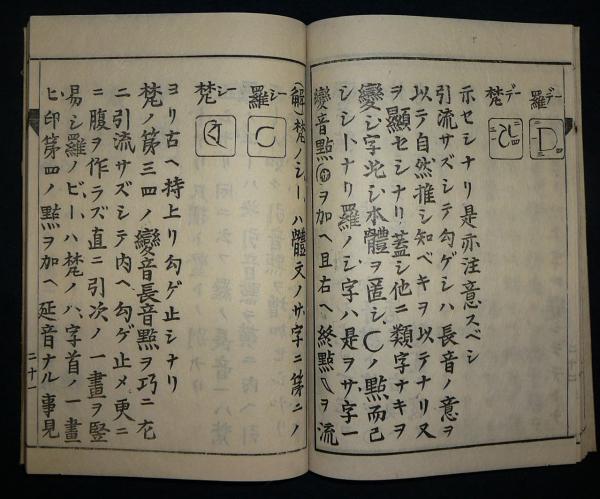 示セシナリ是亦注意スベシ
引流サズシテ勾ゲシハ長音ノ意ヲ
以テ自然推シ知ベキヲ以テナリ又
ヲ顯セシナリ蓋シ他ニ類字ナキヲ
變シ字北シ本體ヲ匿シ ノ點而已
シシトナリ羅ノシ字ハ是ヲサ字一
變音點 ヲ加ヘ且右ヘ終點 ヲ流
羅デー
D
梵デー
(解)梵ノシーハ體文ノサ字ニ第二ノ
羅シー
C
梵シー
ヨリ古ヘ持上リ勾ゲ止シナリ
梵ノ第三四ノ變音長音點ヲ巧ニ充
ニ引流サズシテ内ヘ勾ゲ止メ更ニ
ニ腹ヲ作ラズ直ニ引次ノ一畫ヲ竪
易シ羅ノビーハ梵ノハ字首ノ一畫
ヒ印第四ノ點ヲ加ヘ延音ナル事見
二十一